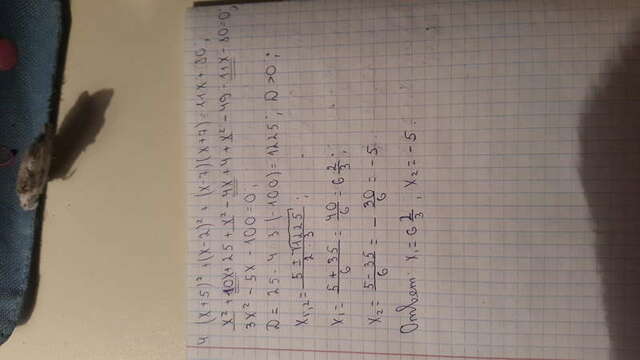 4. (x+5)² + (x-2)² + (x-7)(x+7) = 11x + 80;
x² + 10x + 25 + x² - 4x + 4 + x² - 49 - 11x - 80 = 0;
3x² - 5x - 100 = 0;
D = 25 - 4 · 3 · (-100) = 1225; D > 0;
x₁,₂ = (5 ± √1225)/(2 · 3);
x₁ = (5 + 35)/6 = 40/6 = 6 2/3;
x₂ = (5 - 35)/6 = - 30/6 = -5.
Ответ: x₁ = 6 2/3, x₂ = -5.